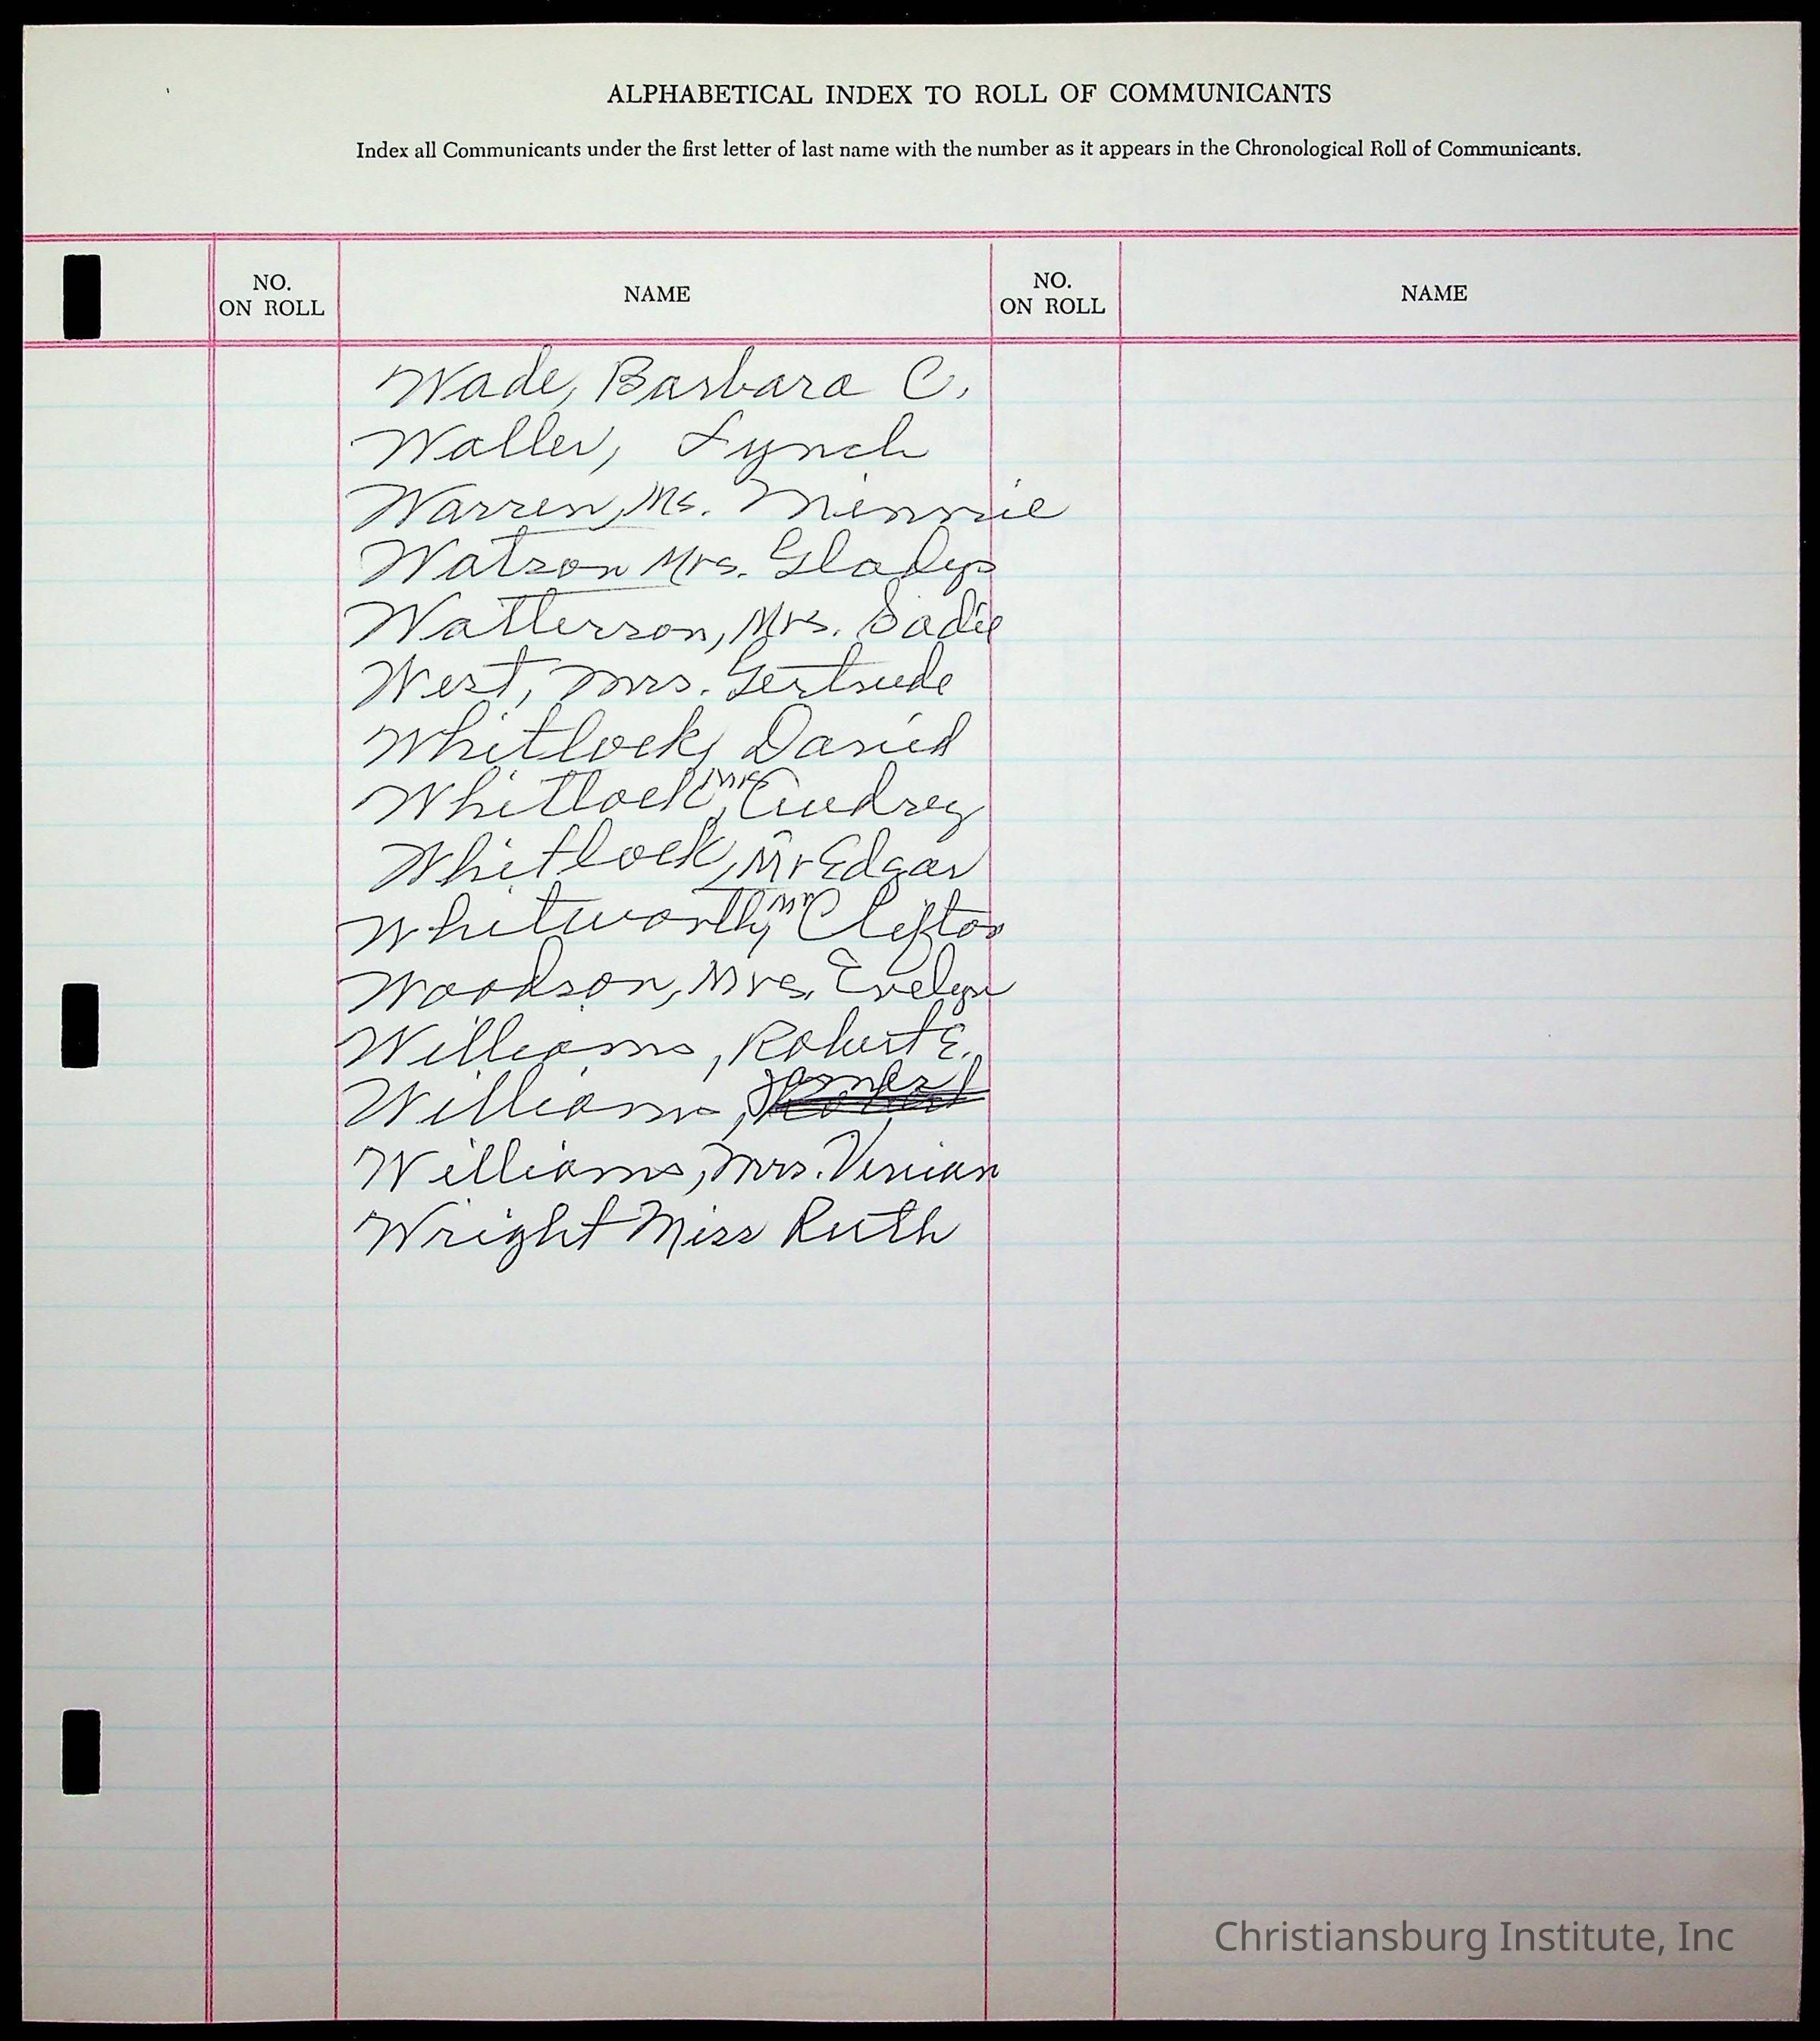 ALPHABETICAL INDEX TO ROLL OF COMMUNICANTS
Index all Communicants under the first letter of last name with the number as it appears in the Chronological Roll of Communicants.
NO. ON ROLL NAME NO. ON ROLL NAME
Wade, Barbara C.
Waller, Lynch
Warren, Ms. Minnie
Watson Mrs. Gladys
Watterson, Mrs. Sadie
West, Mrs. Gertrude
Whitlock, David
Whitlock, Audrey
Whitlock, Mr Edgar
Whitworth, Mr Clifton
Woodson, Mrs. Evelyn
Williams, Robert E.
Williams, James
Williams, Mrs. Vivian
Wright Miss Ruth
Christiansburg Institute, Inc